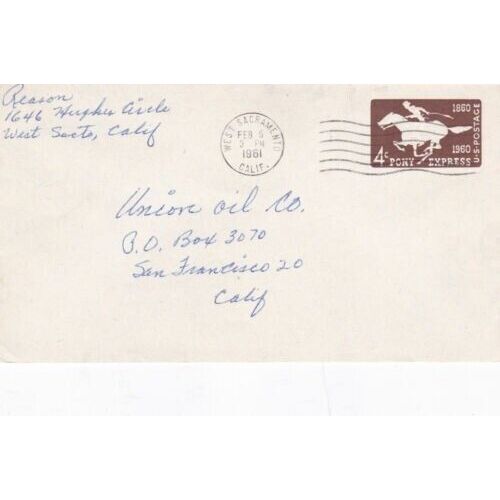 Reason
1646 Hughes Circle
West Sacto, Calif
WEST SACRAMENTO
FEB 6
3 PM
1961
CALIF.
1860
1960
4¢
PONY EXPRESS
U.S. POSTAGE
Union Oil Co.
P.O. Box 3070
San Francisco 20
Calif